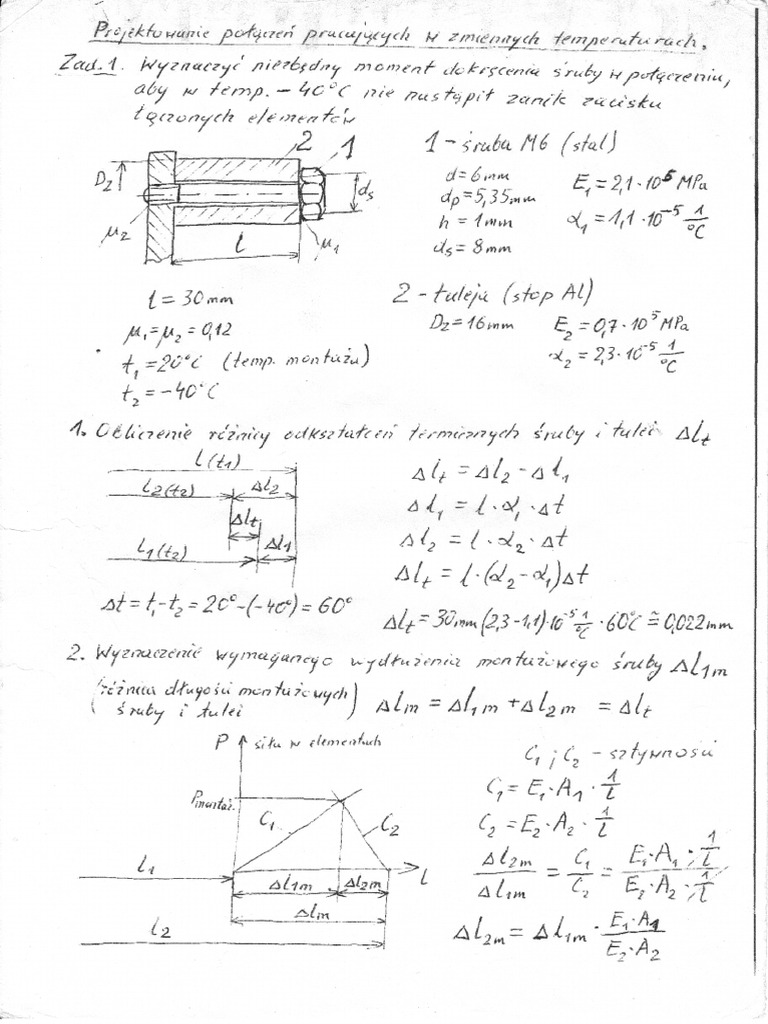 Projektowanie połączeń pracujących w zmiennych temperaturach.
Zad.1. Wyznaczyć niezbędny moment dokręcenia śruby w połączeniu,
aby w temp. −40°C nie nastąpił zanik zacisku
łączonych elementów
2 1
Dz
ds
μ2
l
μ1
1 – śruba M6 (stal)
d = 6mm
dp = 5,35mm
h = 1mm
ds = 8mm
E1 = 2,1·10⁵ MPa
α1 = 1,1·10⁻⁵ 1/°C
l = 30mm
μ1 = μ2 = 0,12
t1 = 20°C (temp. montażu)
t2 = −40°C
2 – tuleja (stop Al)
Dz = 16mm
E2 = 0,7·10⁵ MPa
α2 = 2,3·10⁻⁵ 1/°C
1. Obliczenie różnicy odkształceń termicznych śruby i tulei Δlt
l(t1)
l2(t2) Δl2
Δlt
l1(t2) Δl1
Δt = t1 − t2 = 20° − (−40°) = 60°
Δlt = Δl2 − Δl1
Δl1 = l·α1·Δt
Δl2 = l·α2·Δt
Δlt = l·(α2 − α1)Δt
Δlt = 30mm(2,3−1,1)·10⁻⁵ 1/°C · 60°C ≅ 0,022mm
2. Wyznaczenie wymaganego wydłużenia montażowego śruby Δl1m
(różnica długości montażowych
śruby i tulei) Δlm = Δl1m + Δl2m = Δlt
P siła w elementach
Pmontaż.
C1 C2
l1
l
Δl1m Δl2m
Δlm
l2
C1 i C2 – sztywności
C1 = E1·A1·1/l
C2 = E2·A2·1/l
Δl2m/Δl1m = C1/C2 = E1·A1·1/l / E2·A2·1/l
Δl2m = Δl1m · E1·A1/E2·A2